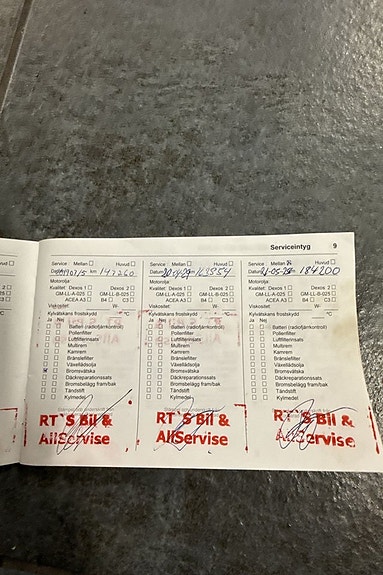 Serviceintyg 9
Huvud
Service Mellan Huvud
Datum km 147260
Motorolja:
Kvalitet: Dexos 1 Dexos 2
GM-LL-A-025 GM-LL-B-025
ACEA A3 B4 C3
Viskositet: W-
Kylvätskans frostskydd °C
Ja Nej
Batteri (radiofjärrkontroll)
Pollenfilter
Luftfilterinsats
Multirem
Kamrem
Bränslefilter
Växellådsolja
Bromsvätska
Däckreparationssats
Bromsbelägg fram/bak
Tändstift
Kylmedel
RT`S Bil &
AllServise
Service Mellan Huvud
Datum km
Motorolja:
Kvalitet: Dexos 1 Dexos 2
GM-LL-A-025 GM-LL-B-025
ACEA A3 B4 C3
Viskositet: W-
Kylvätskans frostskydd °C
Ja Nej
Batteri (radiofjärrkontroll)
Pollenfilter
Luftfilterinsats
Multirem
Kamrem
Bränslefilter
Växellådsolja
Bromsvätska
Däckreparationssats
Bromsbelägg fram/bak
Tändstift
Kylmedel
RT`S Bil &
AllServise
Service Mellan Huvud
Datum km 184200
Motorolja:
Kvalitet: Dexos 1 Dexos 2
GM-LL-A-025 GM-LL-B-025
ACEA A3 B4 C3
Viskositet: W-
Kylvätskans frostskydd °C
Ja Nej
Batteri (radiofjärrkontroll)
Pollenfilter
Luftfilterinsats
Multirem
Kamrem
Bränslefilter
Växellådsolja
Bromsvätska
Däckreparationssats
Bromsbelägg fram/bak
Tändstift
Kylmedel
RT`S Bil &
AllServise